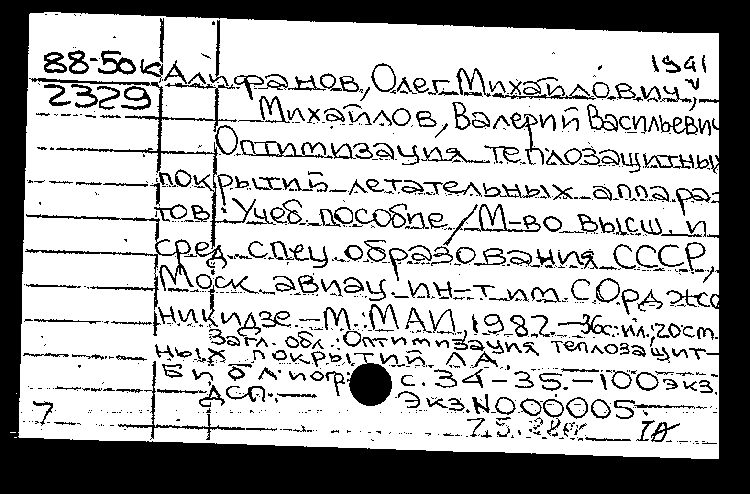 1941
88-50к Алифанов, Олег Михайлович,
2329
Михайлов, Валерий Васильевич
Оптимизация теплозащитных
покрытий летательных аппара-
тов: Учеб пособие / М-во высш. и
сред спец образования СССР,
Моск авиац ин-т им С Орджо
никидзе.-М.:МАИ, 1987.-36с:ил; 20см.
Загл. обл.: Оптимизация теплозащит-
ных покрытий ЛА.
Библиогр: с. 34-35.-100экз.
ДСП.-
Экз.N000005.
7
7.5.88